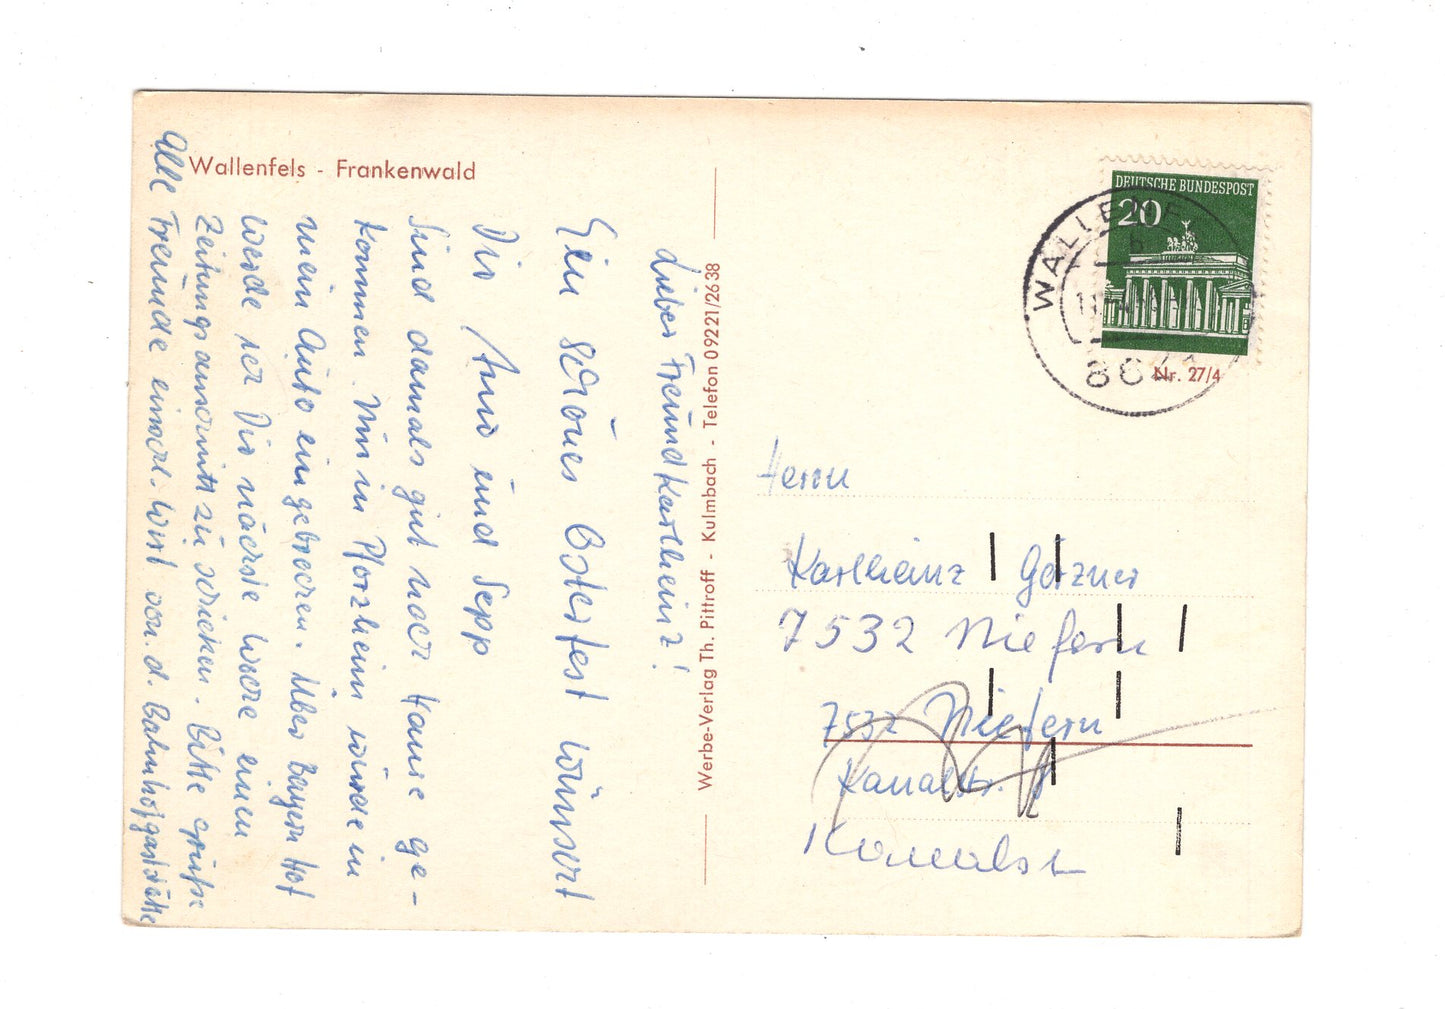 Wallenfels - Frankenwald
Lieber Freund Karlheinz!
Ein schönes Osterfest wünscht
Dir Anni und Sepp
Sind damals gut nach Hause ge-
kommen. Nur in Pforzheim wurde in
mein Auto eingebrochen. Über Bayern Hof
werde ich Dir nächste Woche einen
Zeitungsausschnitt zu schicken. Bitte grüße
Alle Freunde einschl. Wirt von. d. Bahnhofgaststätte
Werbe-Verlag Th. Pittroff - Kulmbach - Telefon 09221/2638
DEUTSCHE BUNDESPOST
20
WALLENF
b
Nr. 27/4
Herrn
Karlheinz
7532 Niefern
7532 Niefern
Kanalstr.
Kanalst